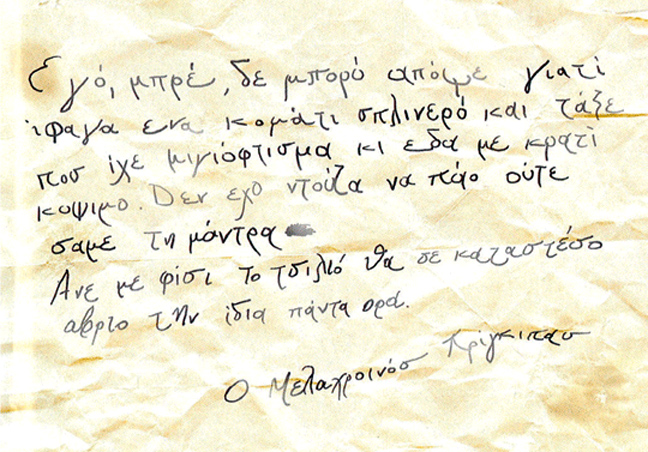 Εγό, μπρέ, δε μπορό απόψε γιατί
ίφαγα ενα κομάτι σπλινερό και τάξε
που ίχε μιγιόφτισμα κι εδα με κρατί
κοψιμο. Δεν εχο ντούζα να πάο ούτε
σαμε τη μάντρα
Ανε με φίσι το τσιλιό θα σε καταστέσο
αβριο την ίδια πάντα ορά.
Ο Μελαχροινός Κρίγκιπασ